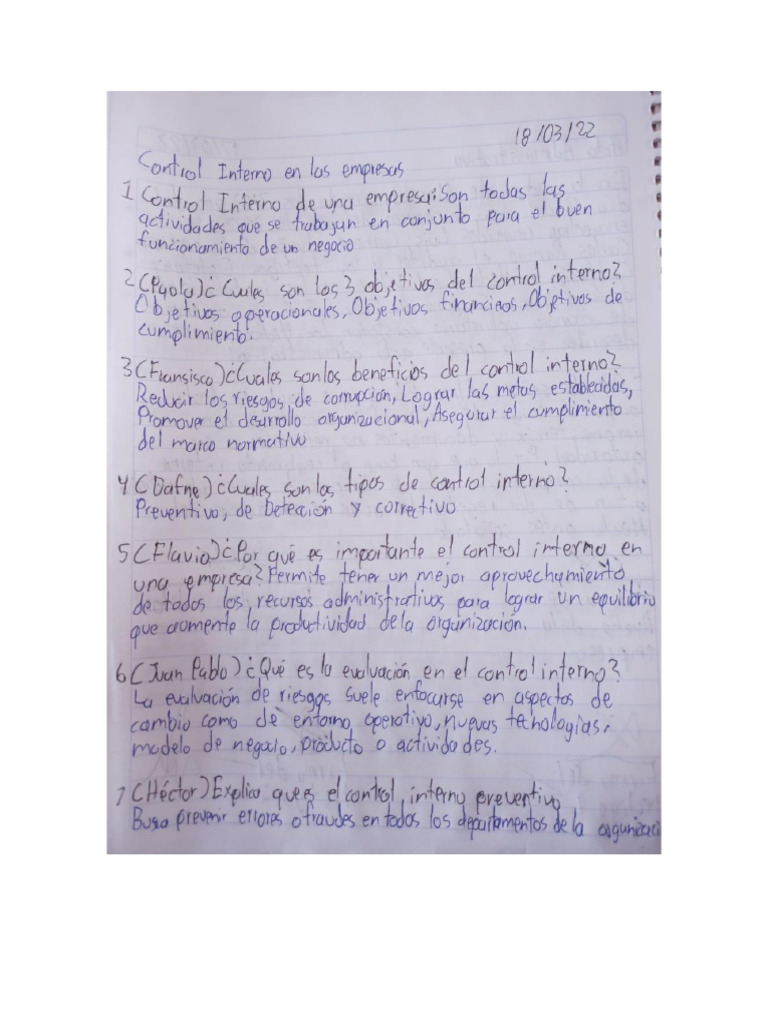 18/03/22
Control Interno en las empresas
1 Control Interno de una empresa: Son todas las
actividades que se trabajan en conjunto para el buen
funcionamiento de un negocio
2 (Paola) ¿Cuales son los 3 objetivos del control interno?
Objetivos operacionales, Objetivos financieros, Objetivos de
cumplimiento.
3 (Fransisco) ¿Cuales son los beneficios del control interno?
Reducir los riesgos de corrupción, Lograr las metas establecidas,
Promover el desarrollo organizacional, Asegurar el cumplimiento
del marco normativo
4 (Dafne) ¿Cuales son los tipos de control interno?
Preventivo, de Detección y correctivo
5 (Flavio) ¿Por qué es importante el control interno en
una empresa? Permite tener un mejor aprovechamiento
de todos los recursos administrativos para lograr un equilibrio
que aumente la productividad de la organización.
6 (Juan Pablo) ¿Qué es la evaluación en el control interno?
La evaluación de riesgos suele enfocarse en aspectos de
cambio como de entorno operativo, nuevas tecnologías,
modelo de negocio, producto o actividades.
7 (Héctor) Explica que es el control interno preventivo
Busca prevenir errores o fraudes en todos los departamentos de la organizaci